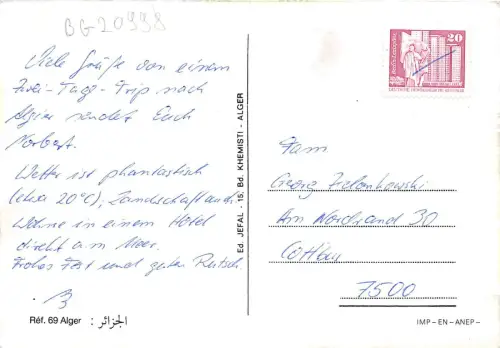 BG20998
Viele Grüße von einem
Zwei-Tage-Trip nach
Algier sendet Euch
Norbert.
Wetter ist phantastisch
(etwa 20°C), Landschaft auch.
Wohne in einem Hotel
direkt am Meer.
Frohes Fest und guten Rutsch.
Réf. 69 Alger : الجزائر
Ed. JEFAL - 15, Bd. KHEMISTI - ALGER
20
Fam
Georg
Am Nordrand 30
Cottbus
7500
IMP – EN – ANEP –